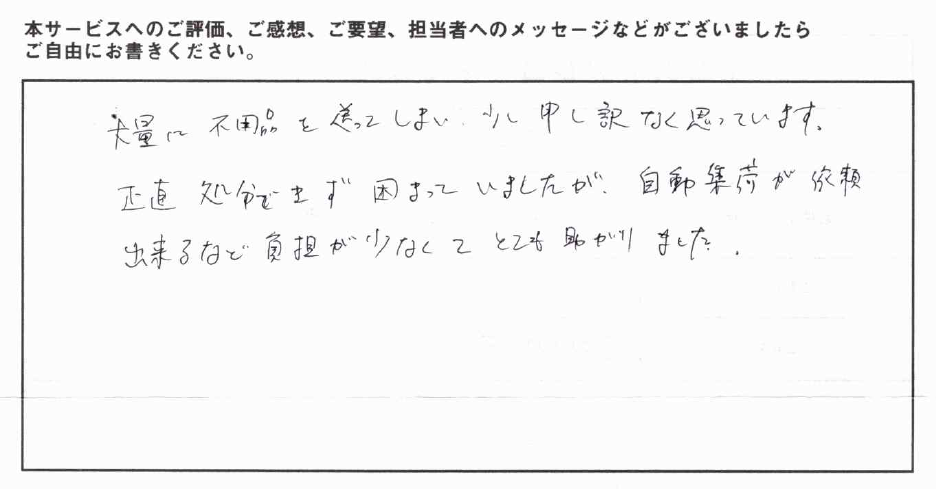 本サービスへのご評価、ご感想、ご要望、担当者へのメッセージなどがございましたら
ご自由にお書きください。
大量に不用品を送ってしまい、少し申し訳なく思っています。
正直処分できず困まっていましたが、自動集荷が依頼
出来るなど負担が少なくてとても助かりました。